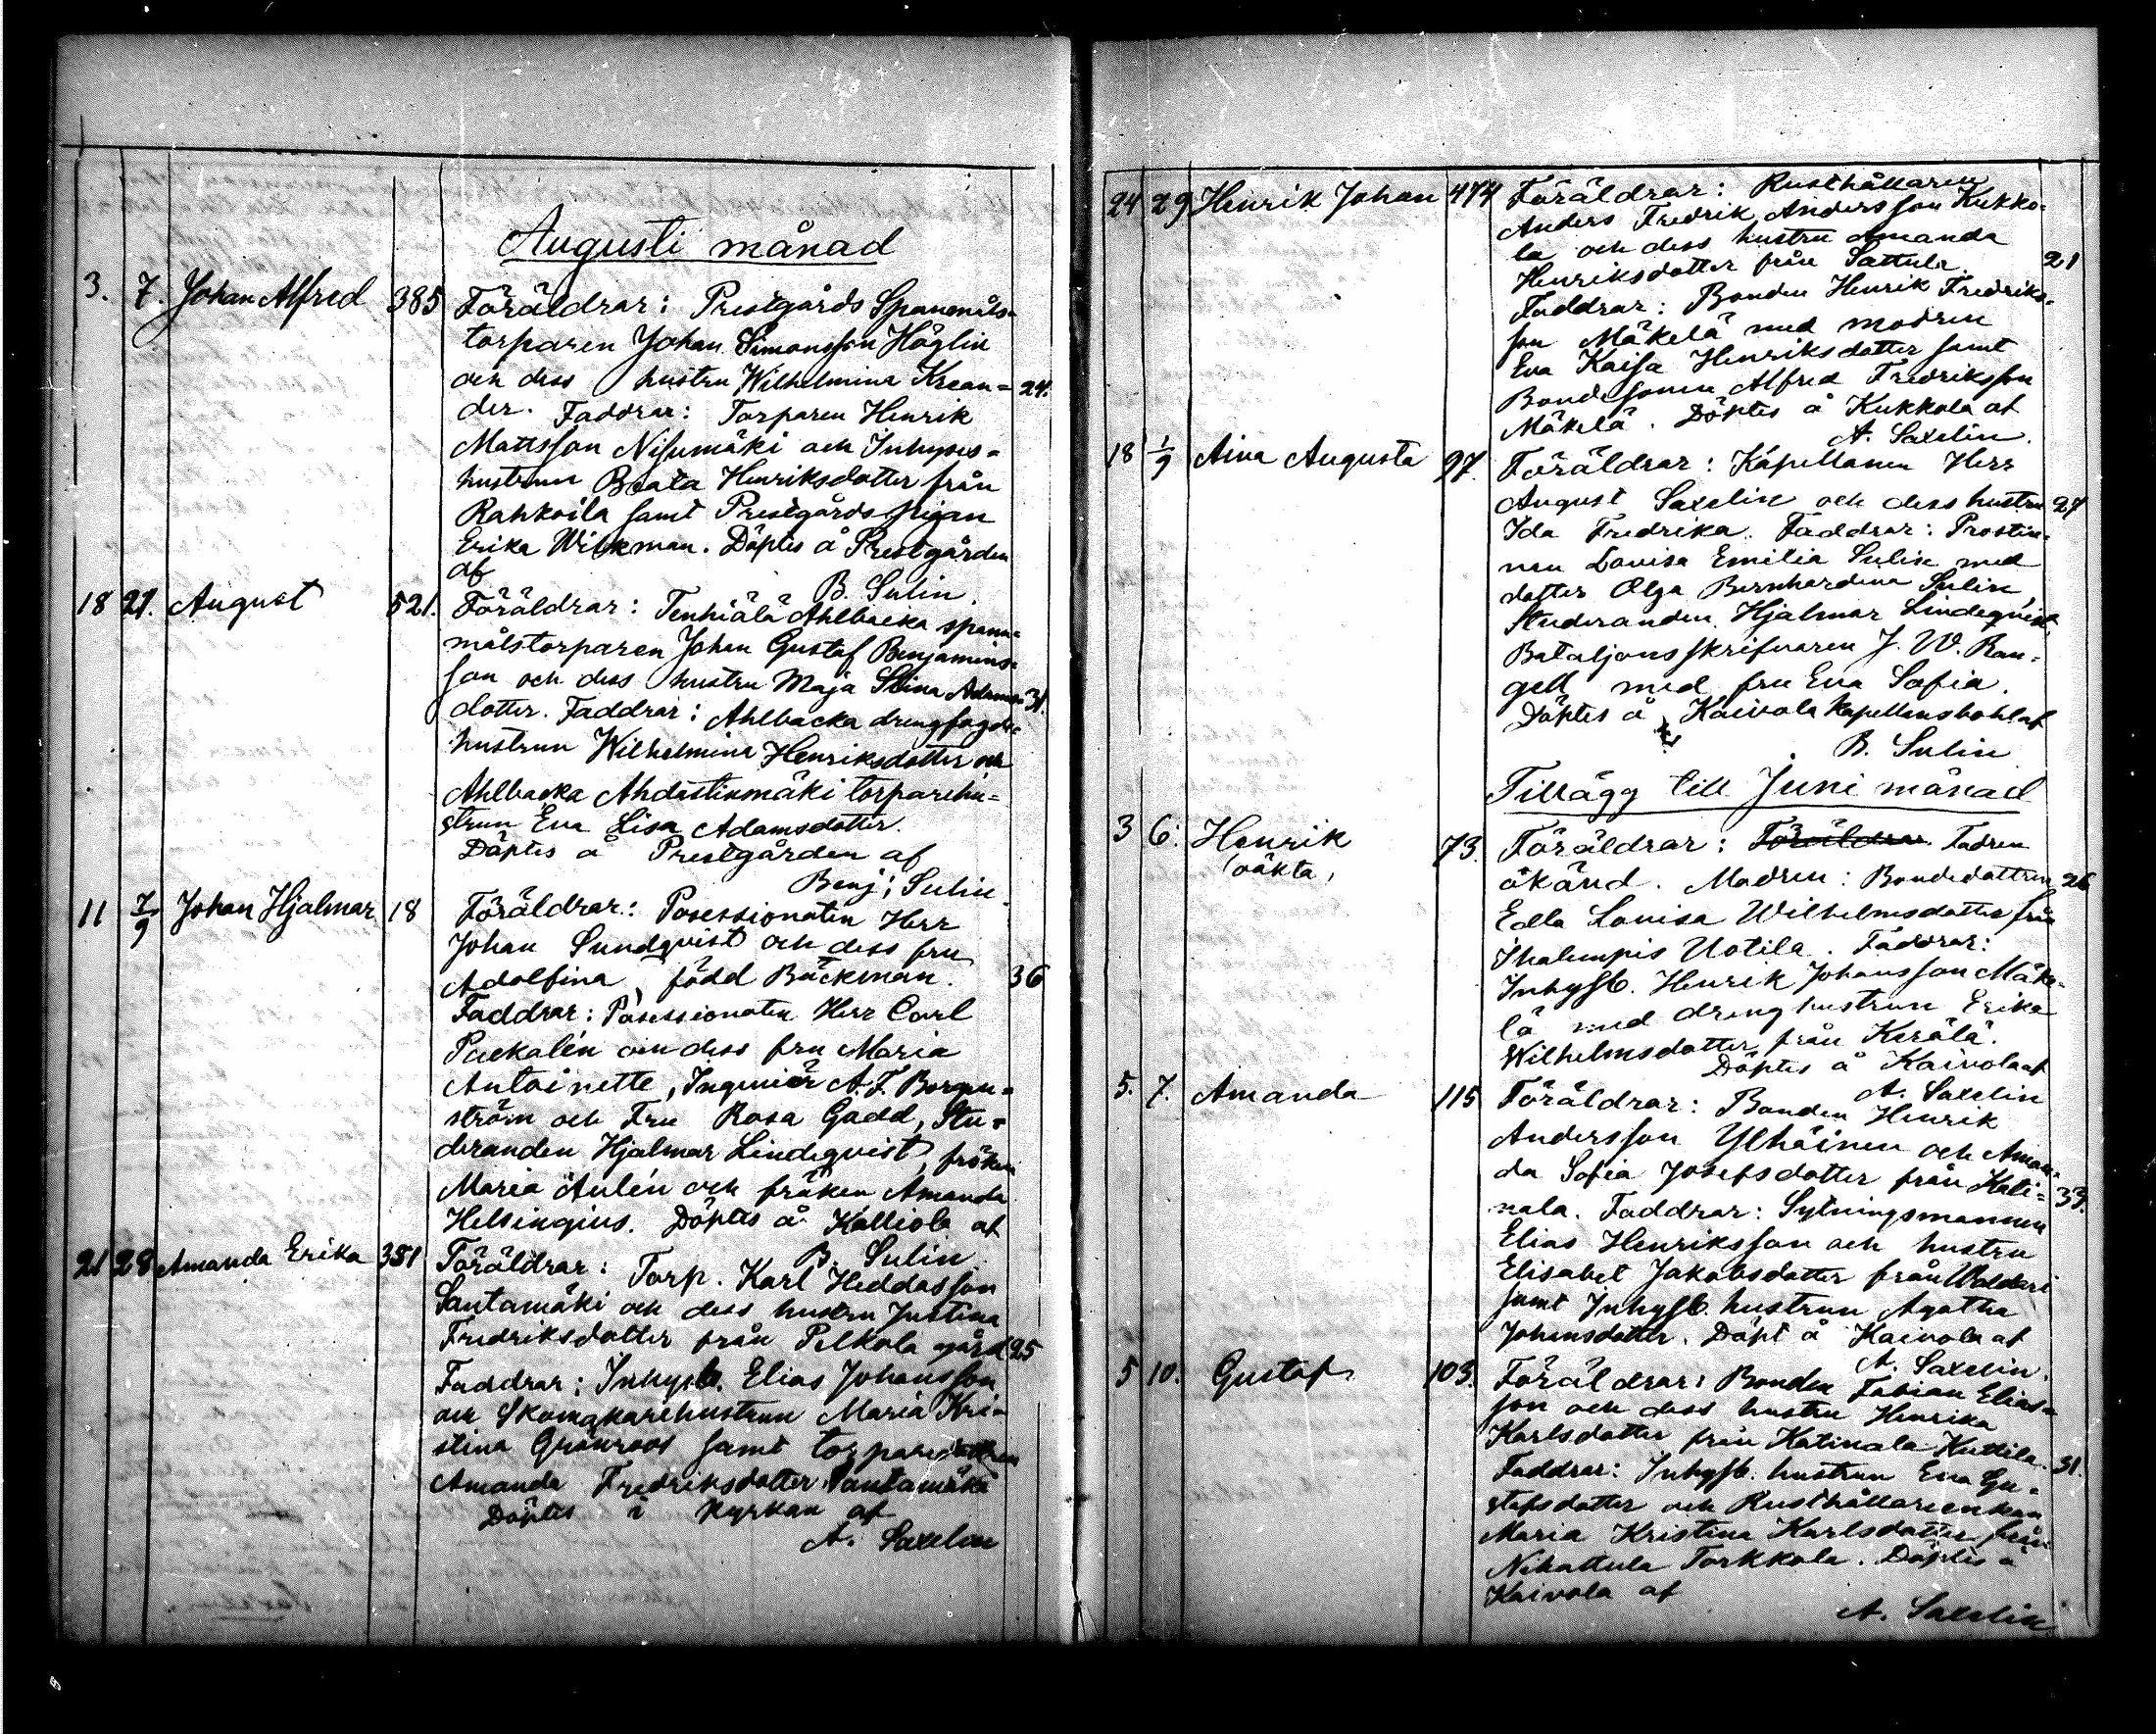 Augusti månad
3. 7. Johan Alfred 385 Föräldrar: Prestgårds Spanmåls-
torparen Johan Simonsson Höglin
och dess hustru Wilhelmina Krean- 24.
der. Faddrar: Torparen Henrik
Mattsson Nisumäki och Inhyses-
hustrun Beata Henriksdotter från
Rahkoila samt Prestgårds pigan
Erika Wikman. Döptes å Prestgården
af
B. Sulin.
18 21. August 521. Föräldrar: Tenhiälä Ahlbacka spann-
målstorparen Johan Gustaf Benjamins-
son och dess hustru Maja Stina Adams- 31.
dotter. Faddrar: Ahlbacka drengfogde-
hustrun Wilhelmina Henriksdotter och
Ahlbacka Ahdistinmäki torparehu-
strun Eva Lisa Adamsdotter.
Döptes å Prestgården af
Benj: Sulin.
11 7/9 Johan Hjalmar 18 Föräldrar: Posessionaten Herr
Johan Sundqvist och dess fru
Adolfina, född Bäckman. 36
Faddrar: Posessionaten Herr Carl
Packalén och dess fru Maria
Antoinette, Ingeniör A. F. Borgen-
ström och Fru Rosa Gadd, Stu-
deranden Hjalmar Lindeqvist, fröken
Maria Aulén och fröken Amanda
Helsingius. Döptes å Kalliola af
B. Sulin
21 28 Amanda Erika 351 Föräldrar: Torp. Karl Heddasson
Santamäki och dess hustru Justina
Fredriksdotter från Pelkola gård 25
Faddrar: Inhysb. Elias Johansson
och Skomakarehustrun Maria Kri-
stina Grönroos samt torparedottren
Amanda Fredriksdotter Santamäki
Döptes i Kyrkan af
A. Saxelin
24 29 Henrik Johan 474 Föräldrar: Rusthållaren
Anders Fredrik Andersson Kukko-
la och dess hustru Amanda
Henriksdotter från Sattula. 21
Faddrar: Bonden Henrik Fredriks-
son Mäkelä med modren
Eva Kaisa Henriksdotter samt
Bondesonen Alfred Fredriksson
Mäkelä. Döptes å Kukkola af
A. Saxelin.
18 1/9 Aina Augusta 97. Föräldrar: Kapellanen Herr
August Saxelin och dess hustru 27
Ida Fredrika. Faddrar: Prostin-
nan Lovisa Emilia Sulin med
dotter Olga Bernhardina Sulin,
Studeranden Hjalmar Lindeqvist,
Bataljonsskrifvaren J. W. Ran-
gell med fru Eva Sofia.
Döptes å Kaivola kapellansbohl af
B. Sulin
Tillägg till Juni månad
3 6. Henrik 73. Föräldrar: Föräldrar Fadren
(oäkta) okänd. Modren: Bondedottren 26
Edla Lovisa Wilhelmsdotter från
Ihalempis Uotila. Faddrar:
Inhysb. Henrik Johansson Mäke-
lä med dreng hustrun Erika
Wilhelmsdotter från Kerälä.
Döptes å Kaivola af
A. Saxelin
5. 7. Amanda 115 Föräldrar: Bonden Henrik
Andersson Ylhäinen och Aman-
da Sofia Josefsdotter från Kati- 33.
nala. Faddrar: Sytningsmannen
Elias Henriksson och hustru
Elisabet Jakobsdotter från
samt Inhysb. hustrun Agatha
Johansdotter. Döpt å Kaivola af
A. Saxelin.
5 10. Gustaf 103. Föräldrar: Bonden Fabian Elias-
son och dess hustru Henrika
Karlsdotter från Katinala Kuttila. 31.
Faddrar: Inhysb. hustrun Eva Gu-
stafsdotter och Rusthållareenkan
Maria Kristina Karlsdotter från
Nihattula Torkkola. Döptes å
Kaivola af
A. Saxelin